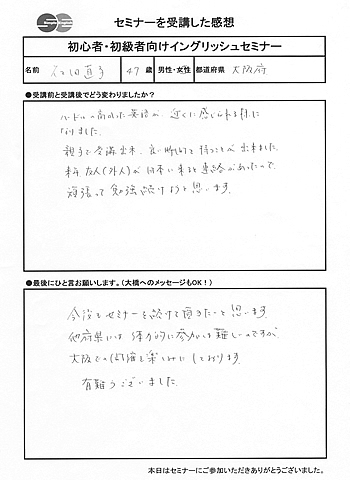 セミナーを受講した感想
初心者・初級者向けイングリッシュセミナー
名前 石田直子 47 歳 男性・女性 都道府県 大阪府
●受講前と受講後でどう変わりましたか？
ハードルの高かった英語が、近くに感じられる様に
なりました。
親子で受講出来、良い時間を持つことが出来ました。
来年、友人(外人)が日本に来ると連絡があったので、
頑張って勉強続けようと思います。
●最後にひと言お願いします。(大橋へのメッセージもOK！)
今後もセミナーを続けて頂きたいと思います。
他府県には体力的に参加は難しいのですが
大阪での開催を楽しみにしております。
有難うございました。
本日はセミナーにご参加いただきありがとうございました。